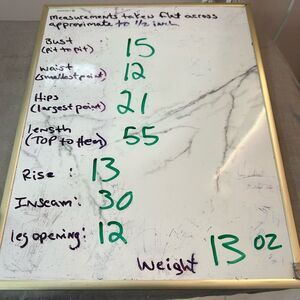 Measurements taken flat across
approximate to 1/2 inch
Bust : 15
(Pit to pit)
Waist : 12
(smallest point)
Hips : 21
(largest point)
length : 55
(TOP to Hem)
Rise : 13
Inseam: 30
leg opening: 12
Weight 13 oz